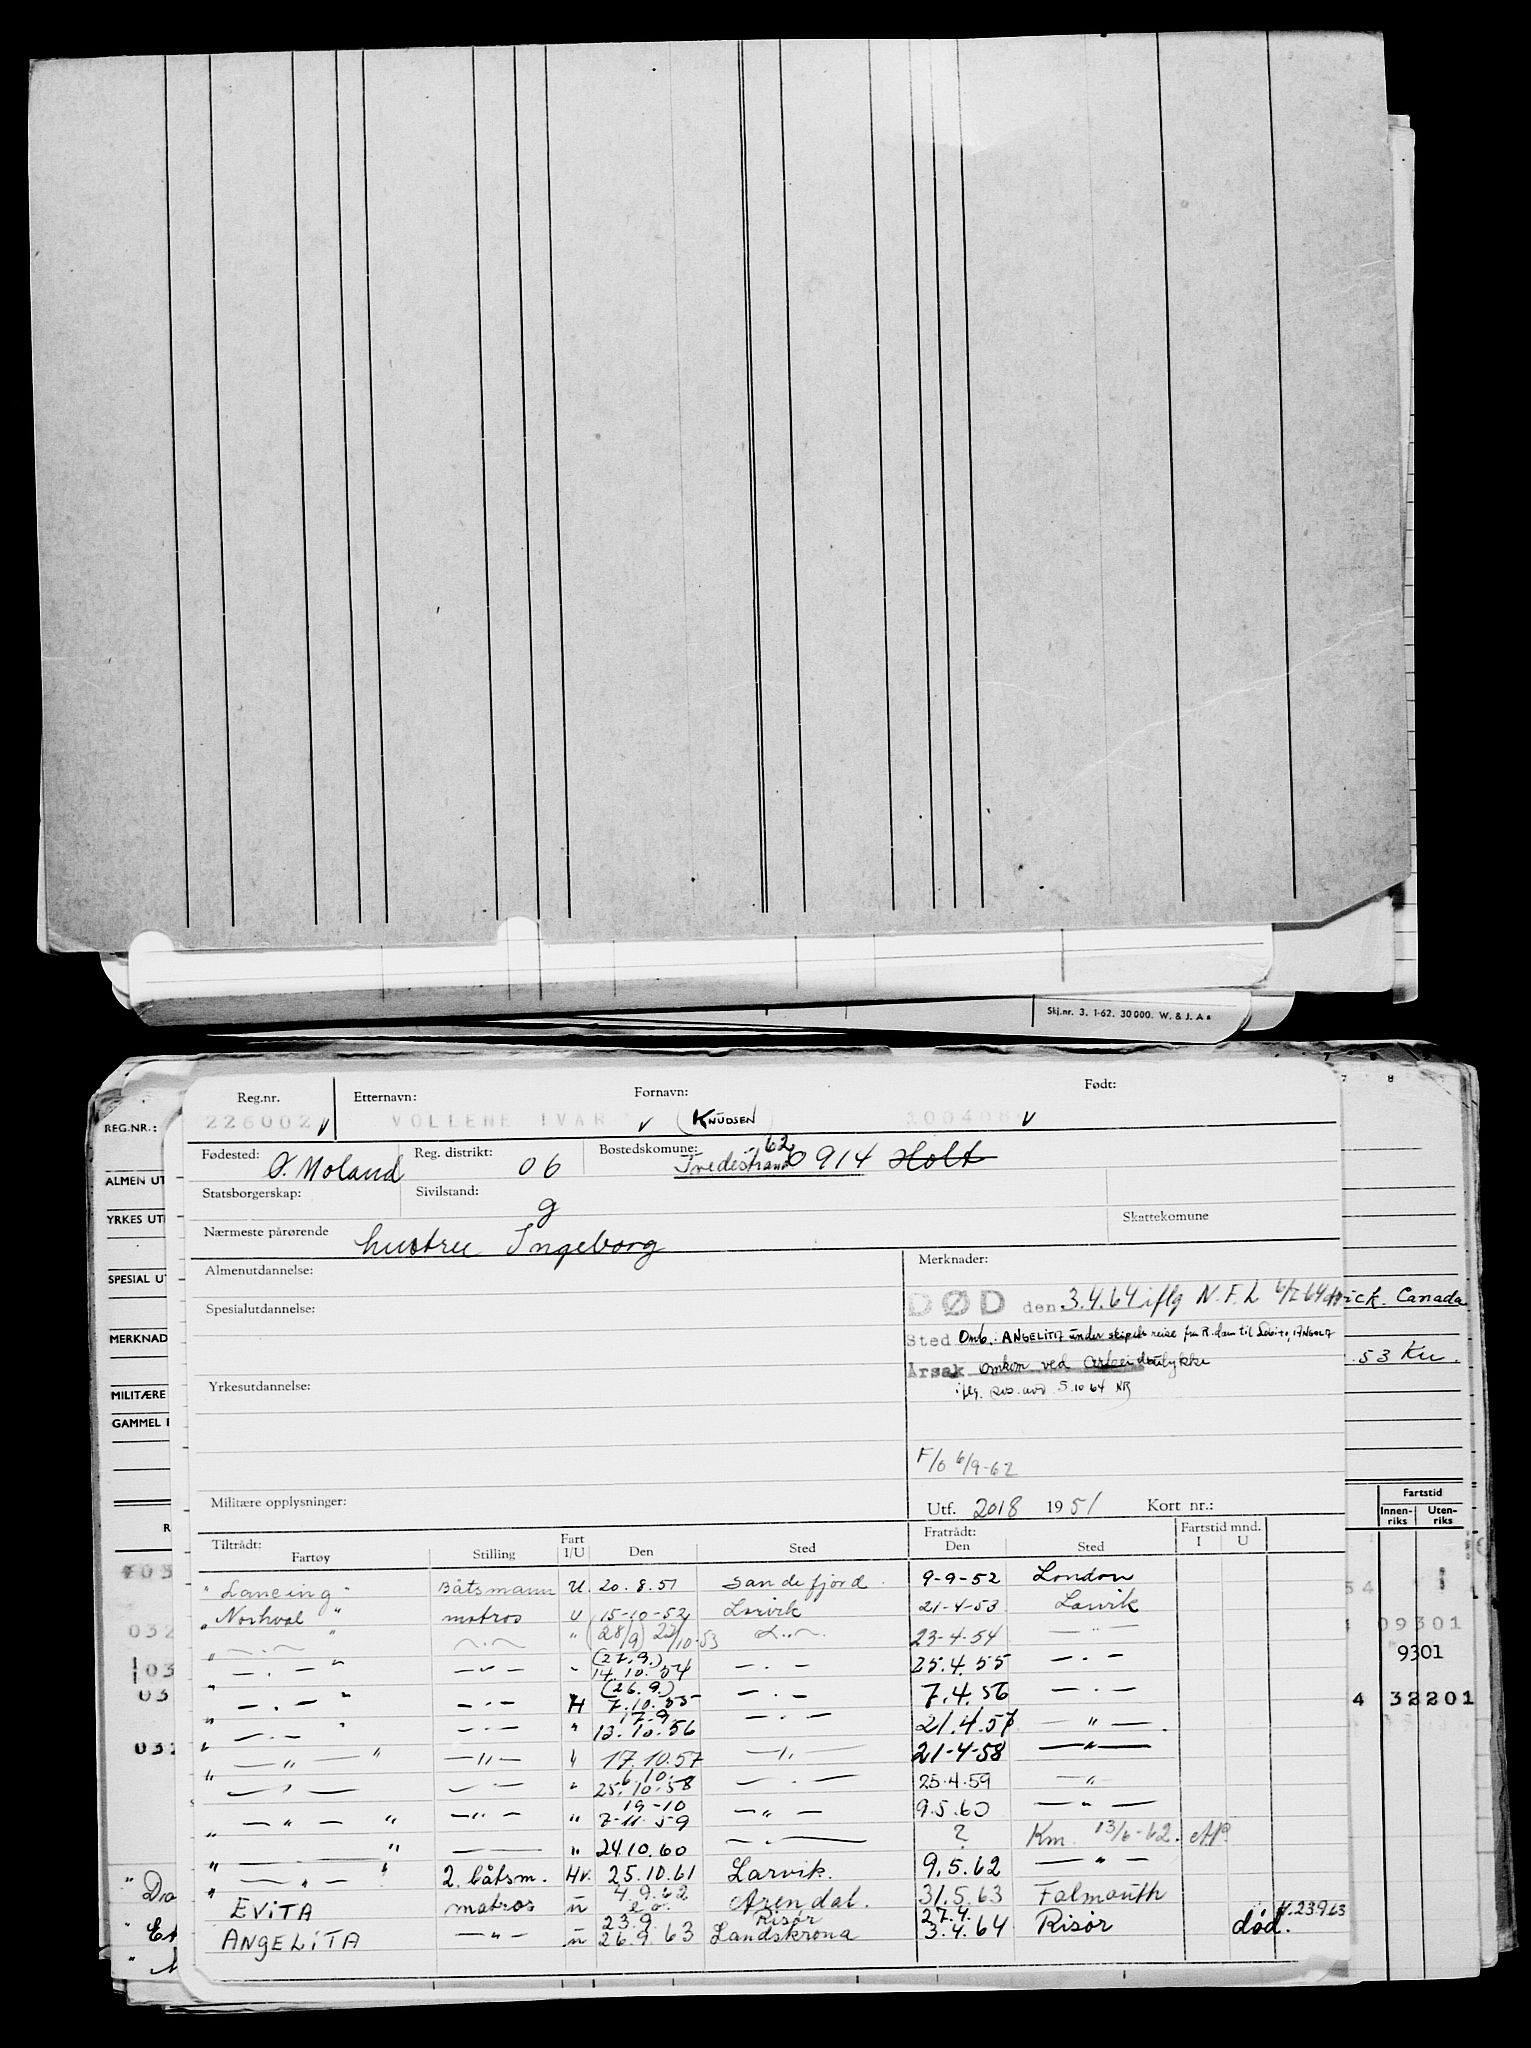 Skj.nr. 3. 1-62. 30000. W. & J. A s
7 8
REG.NR.:
ALMEN UT
YRKES UT
SPESIAL UT
MERKNAD
MILITÆRE
GAMMEL
Reg.nr. Etternavn: Fornavn: Født:
226002 VOLLENE IVAR (KNUDSEN) 100408
Fødested: Ø. Moland Reg. distrikt: 06 Bostedskomune: Tvedestrand 62 0914 Holt
Statsborgerskap: Sivilstand: g
Skattekomune
Nærmeste pårørende hustru Ingeborg
Almenutdannelse: Merknader:
DØD den 3.4.64 iflg N.F.L
Spesialutdannelse:
Sted Omb. ANGELITA under skipets reise fra R.dam til Lobito, ANGOLA
Årsak omkom ved arbeidsulykke
iflg. 5.10 64
Yrkesutdannelse:
F/O 6/9-62
Militære opplysninger:
Utf. 2018 1951 Kort nr.:
Tiltrådt: Fratrådt: Fartstid mnd.
Fartøy Stilling Fart I/U Den Sted Den Sted I U
" Lancing " Båtsmann U. 20.8.51 Sandefjord. 9-9-52 London
" Norhval " matros U 15-10-52 Larvik 21-4-53 Larvik
" — . — " — . — " (28/9) 22/10-53 — " — 23-4-54 — " —
" — . — " — " — " (27.9.) 14.10.54 — . — 25.4.55 — . —
" — . — " — . — H (26.9.) 7.10.55 — . — 7.4.56 — . —
" — . — " — . — " 17.9. 13.10.56 — . — 21.4.57 — " —
" — " — " — " — " 17.10.57 — " — 21-4-58 — " —
" — " — — " — " 6.10. 25.10.58 — . — 25.4.59 — " —
" — " — " — " — " 19-10 7-11.59 — " — 9.5.60 — " —
" — " — " 24.10.60 — " — ? Km. 13/6-62.
" — " — " 2. båtsm. Hv. 25.10.61 Larvik. 9.5.62 — " —
EVITA matros u 4.9.62 Arendal. 31.5.63 Falmouth
ANGELITA — " — u 23.9. 26.9.63 Risør Landskrona 27.4. 3.4.64 Risør død. 23963
ick. Canada
.53 Ku.
Fartstid
Innen-riks Uten-riks
54
09301
9301
4 32201
032
03
03
03
" Da